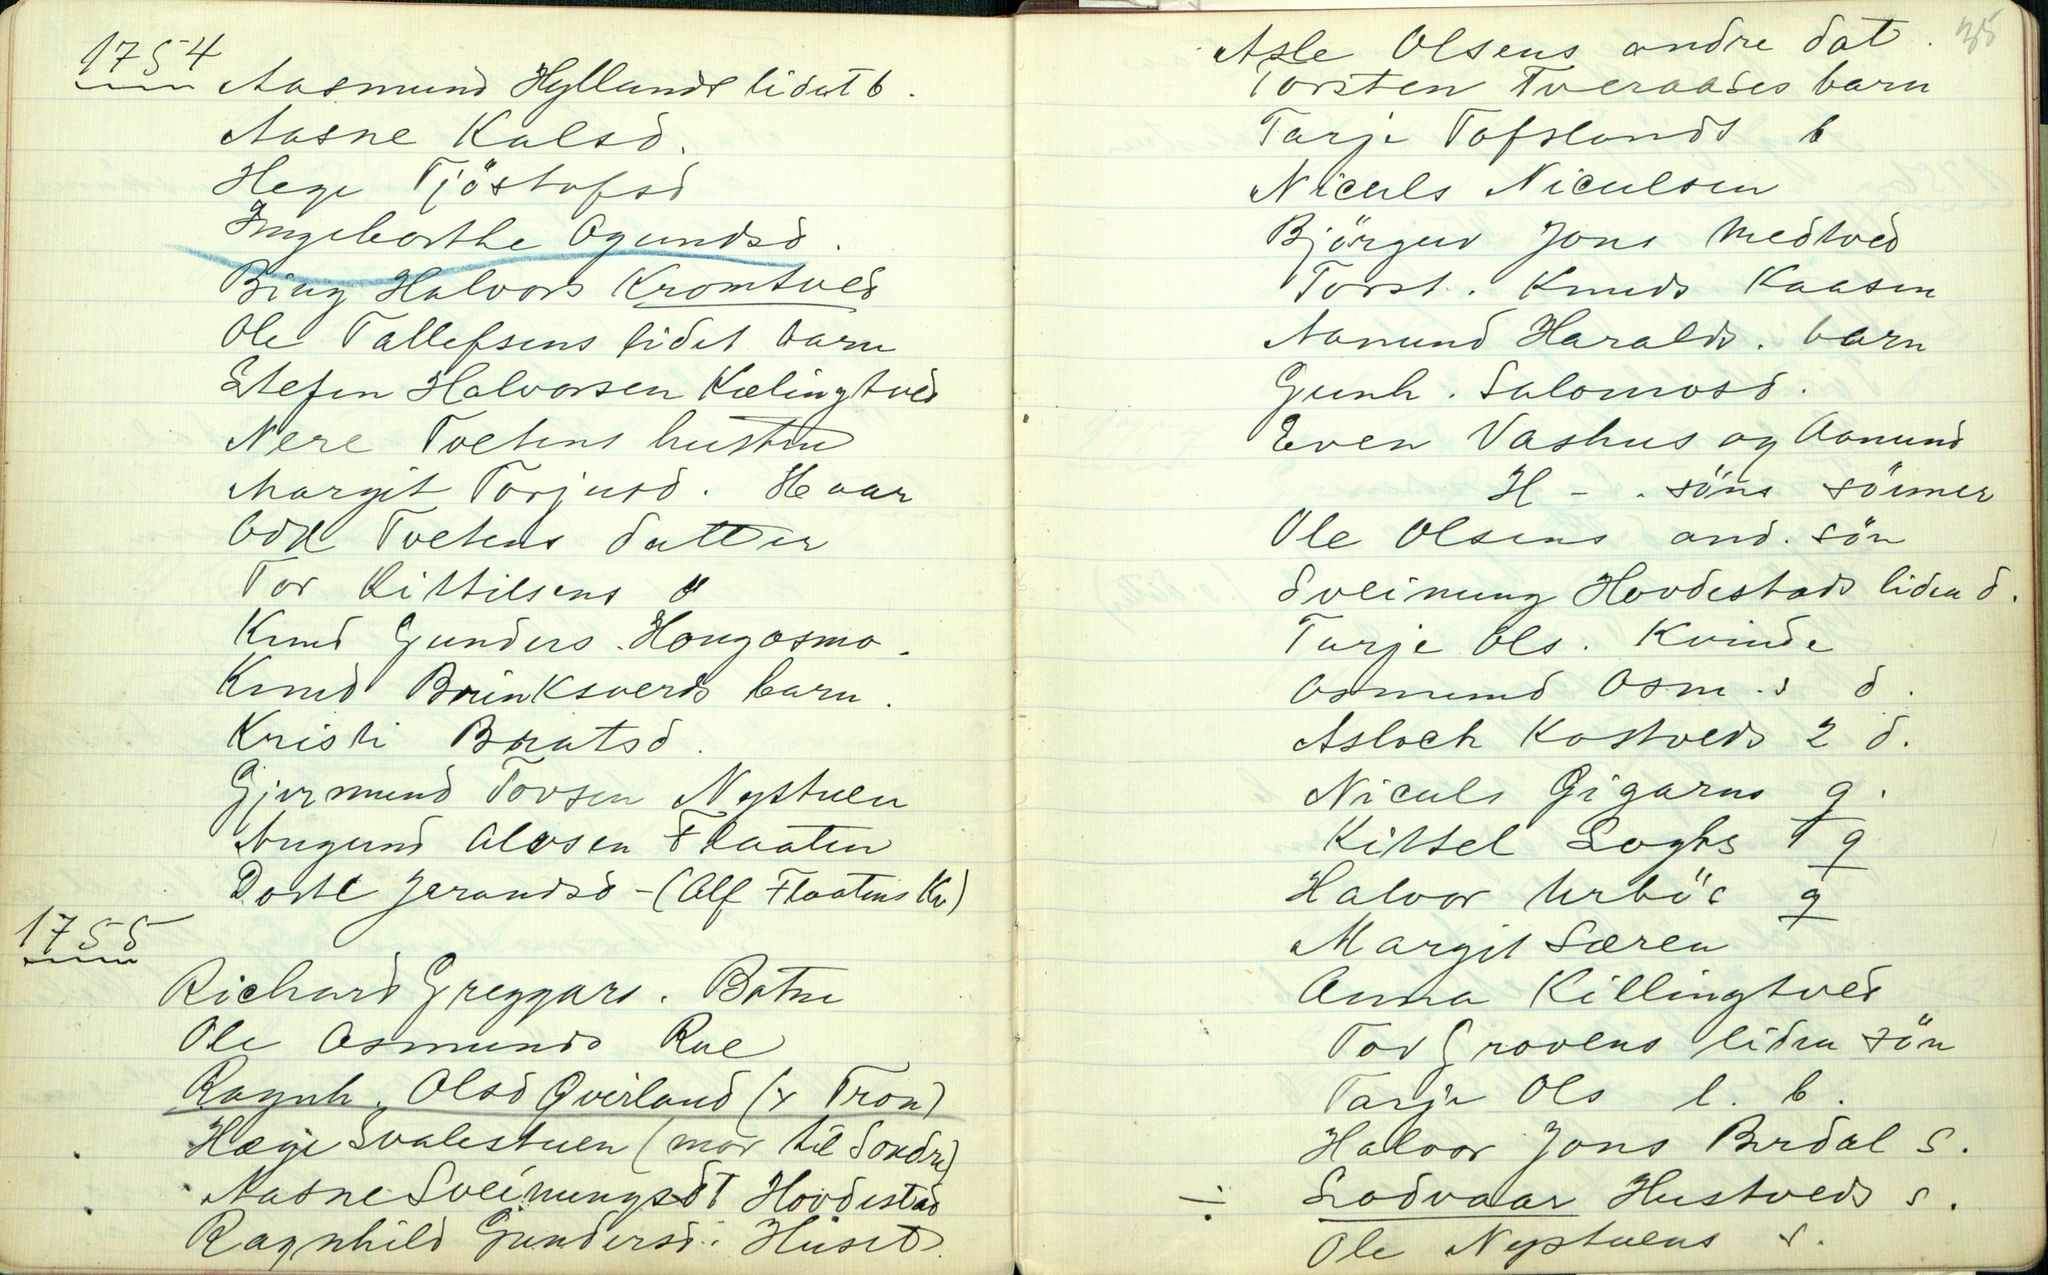 1754
Aasmund Hyllands lidet b.
Aasne Kalsd.
Hege Tjöstofsd
Ingeborthe Ogundsd.
Halvors Kromtved
Ole Tallefsens lidet barn
Stefen Halvorsen Kælingtved
Nere Tvetens hustru
Margit Torjusd. Haar
Odd Tvetens datter
Tor Kittilsens "
Knud Gunders. Hougosmo.
Knud Brinksverds barn.
Kristi Bratsd.
Gjermund Tovsen Nystuen
Augund Alvsen Flaaten
Dorte Jerandsd - (Alf Flaatens Kv)
1755
Richard Greggars. Botne
Ole Osmunds Rue
Ragnh. Olsd Qverland (x Tron)
Hæge Svalestuen (mor til Sondre)
Aasne Sveinungsdt Hovdestad
Ragnhild Gundersd. Huset
35
Asle Olsens andre dat.
Torsten Tveraades barn
Tarje Tofslands b
Niculs Niculsen
Björguv Jons Medtved
Torst. Knuds Kaasen
Aanund Haralds. barn
Gunh. Salomosd.
Even Vashus og Aanund
H - . söns sönner
Ole Olsens and. sön
Sveinung Hovdestads liden d.
Tarje Ols. Kvinde
Osmund Osm.s d.
Asloch Kostveds 2 d.
Niculs Gigarns q.
Kittel Loghs 1 q
Halvor Urböe q
Margit Særen
Anna Killingtved
Tov Grovens liden sön
Tarje Ols l. b.
Halvor Jons Berdal s.
÷ Lodvaar Hustveds s.
Ole Nystuens s.